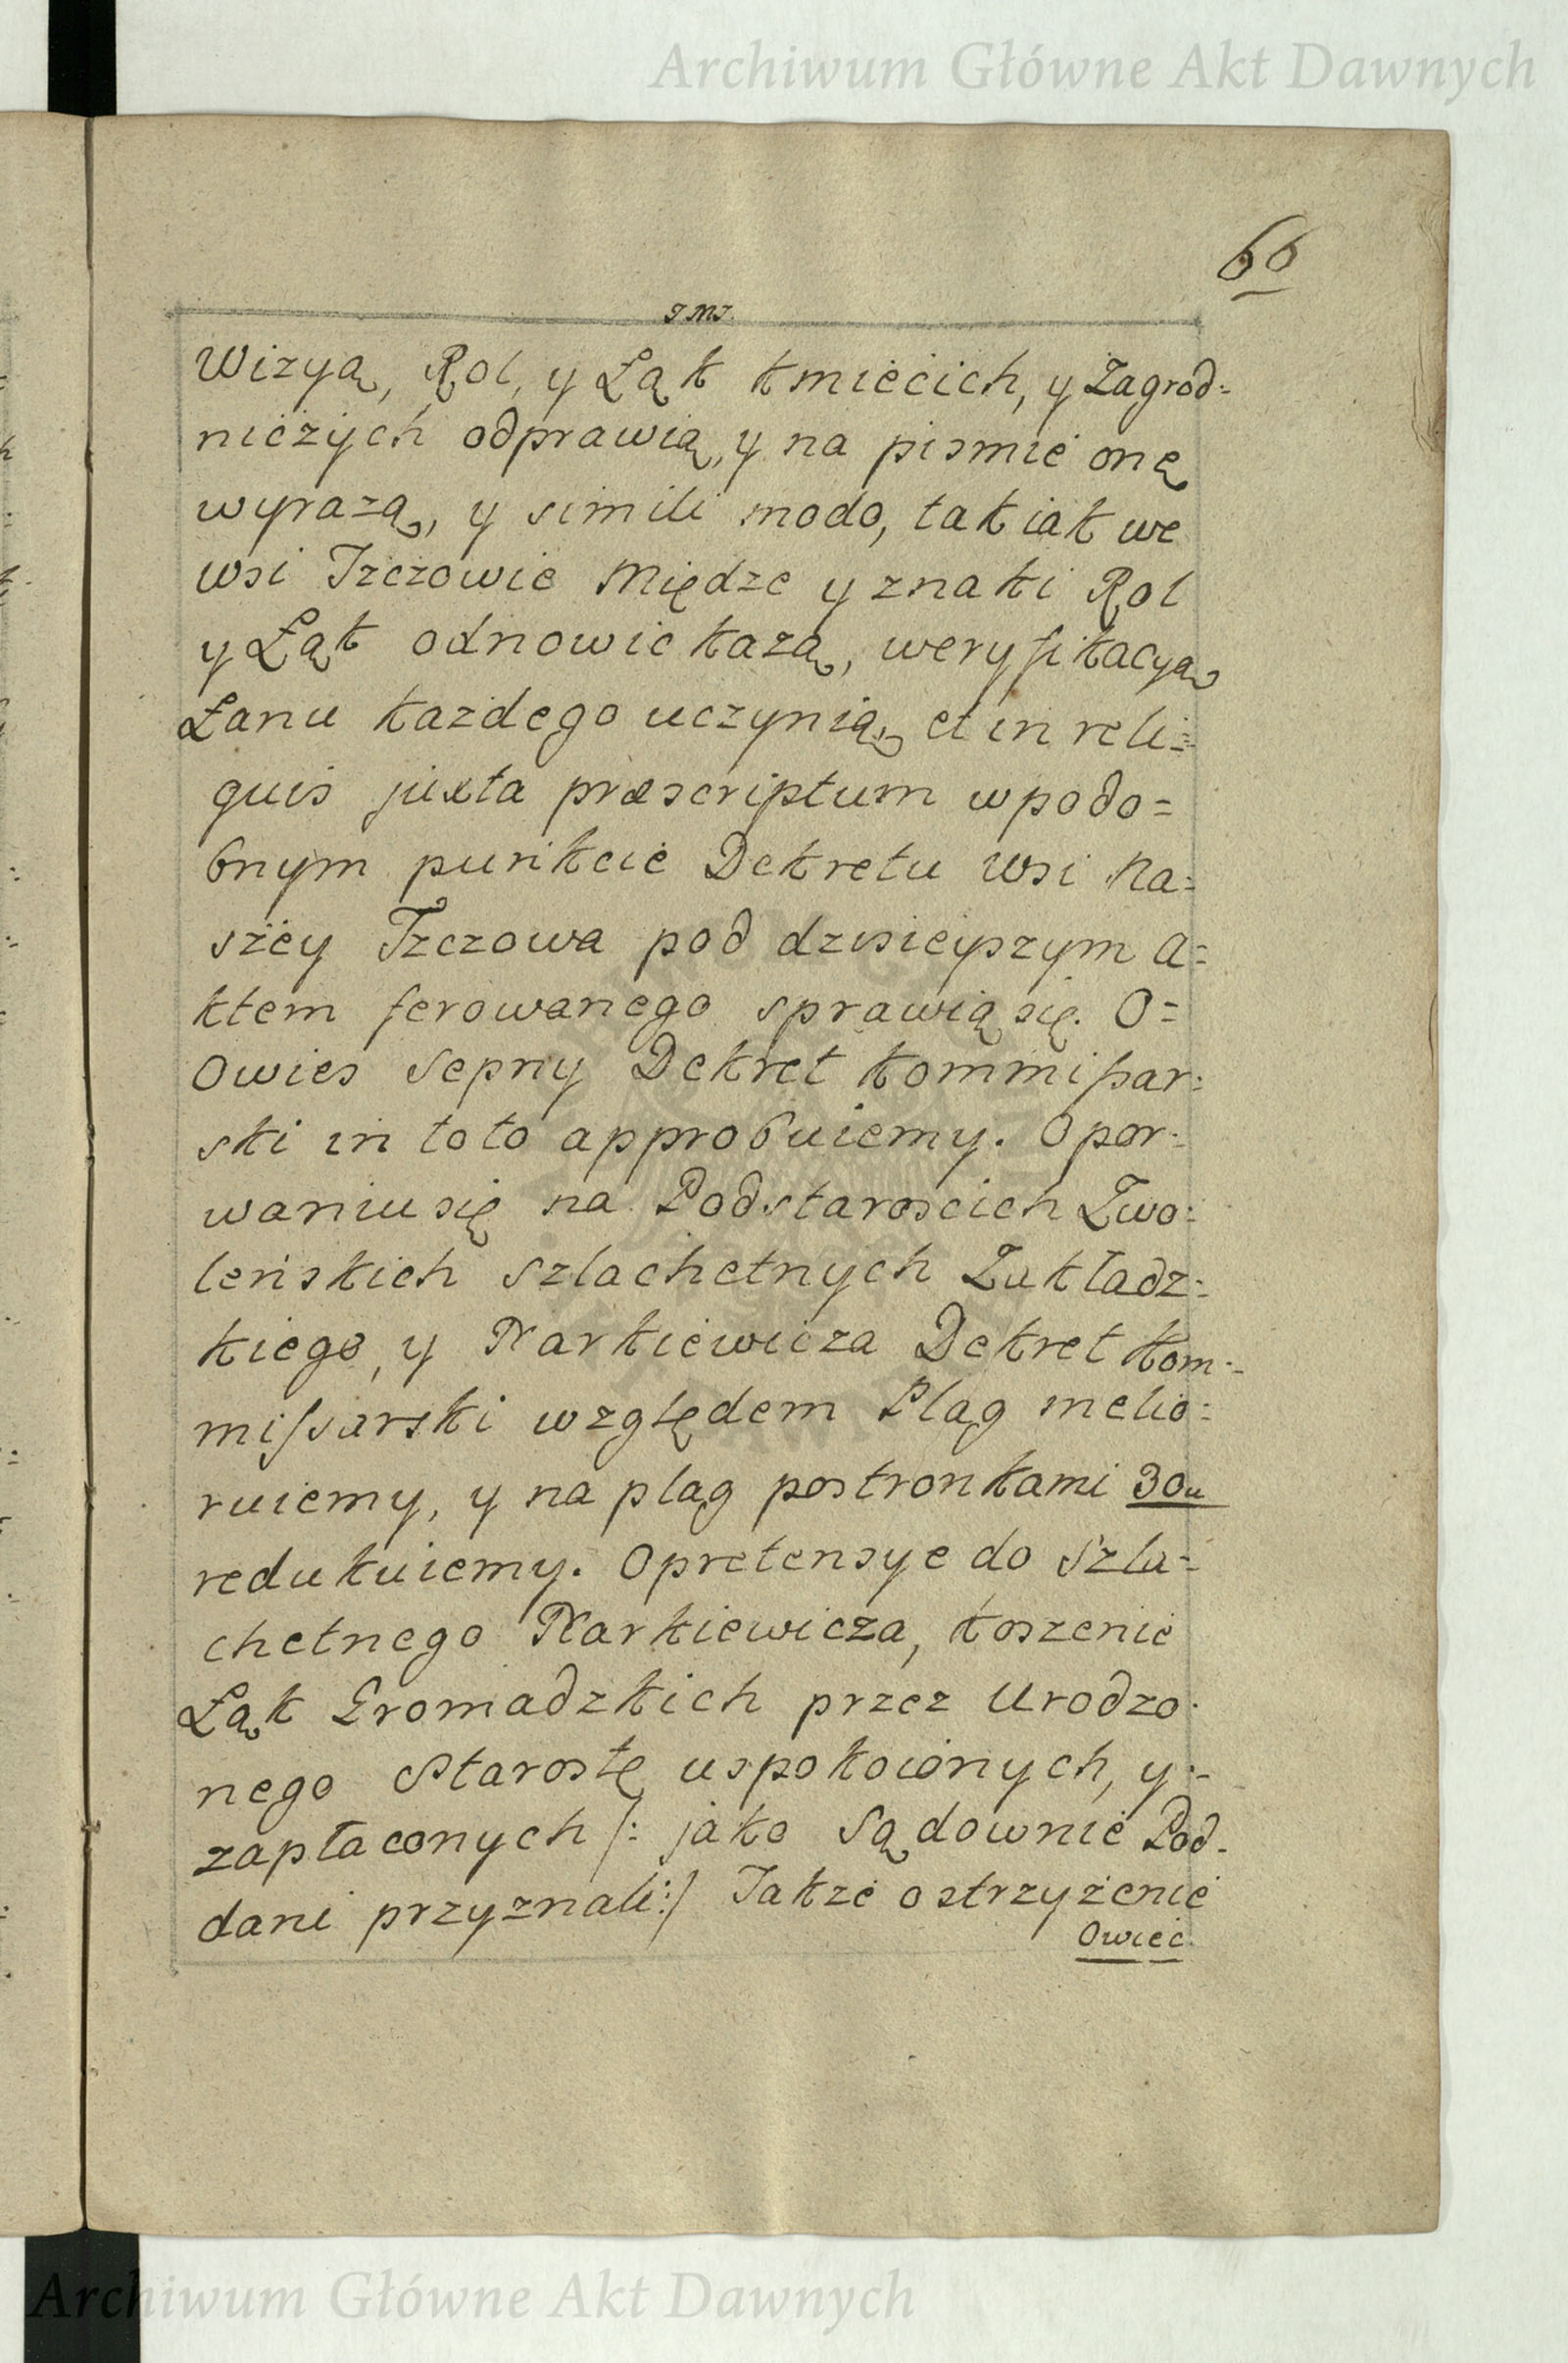 Archiwum Główne Akt Dawnych
66
JMJ.
Wizyą, Rol, y Łąk kmiécich, y Zagrod=
niczych odprawią, y na pismié onę
wyrazą, y simili modo, tak iak we
wsi Tczczowie Między y znaki Rol
y Łąk odnowić każą, weryfikacyą
Łanu kazdego uczynią, et in reli=
quis juxta præscriptum w podo=
bnym punkcie Dekretu Wsi Na=
szey Tczczowa pod dzisieyszym A=
ktem ferowanego sprawią się. O=
Owies Sepny Dekret kommissar=
ski in toto approbuiemy. O por=
waniu się na Podstaroscich Zwo=
leńskich Szlachetnych Zakładz=
kiego, y Narkiewicza Dekret kom=
missarski względem Plag melio=
ruiemy, y na plag postronkami 30u
redukuiemy. O pretensye do Szla=
chetnego Narkiewicza, koszenié
Łąk Gromadzkich przez Urodzo=
nego Starostę uspokoionych, y=
zapłaconych /: jako Sądownié Pod=
dani przyznali :/ Takze o strzyżenié
Owiec.
Archiwum Główne Akt Dawnych